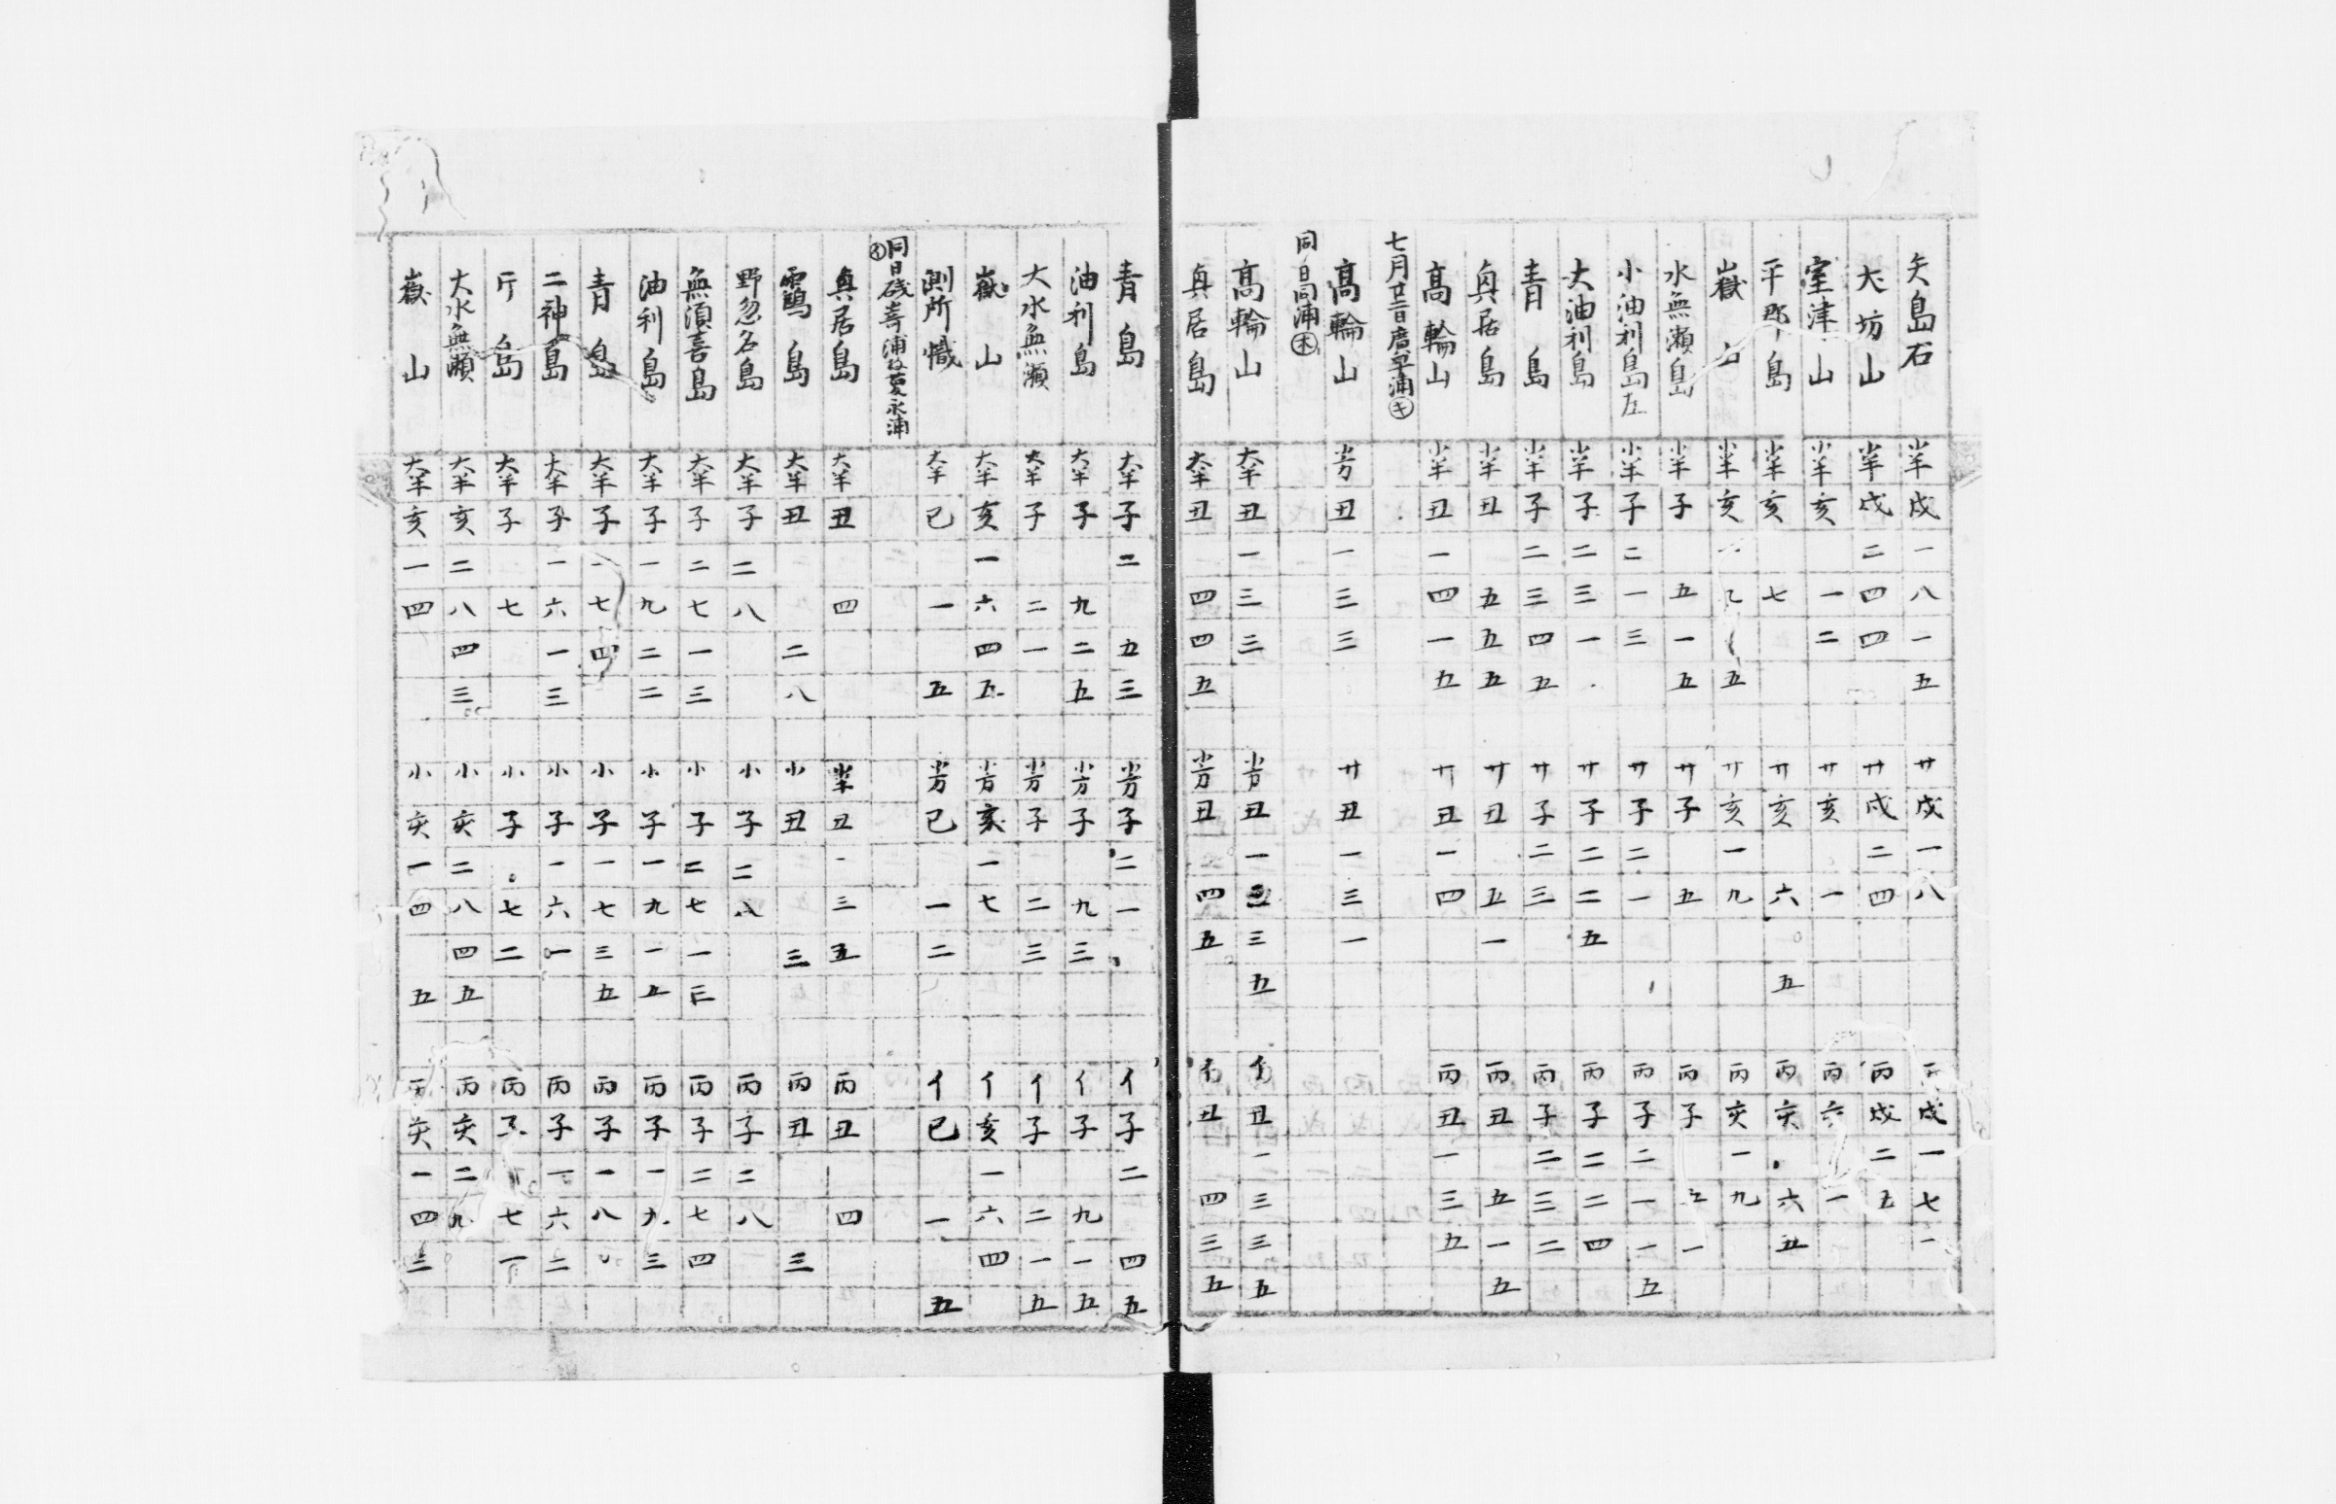 矢島石 小半戌一八一五 廿戌一八 丙戌一七一
大坊山 小半戌二四四 廿戌二四 丙戌二五
室津山 小半亥一二 廿亥一 丙亥一
平郡島 小半亥七 廿亥六五 丙亥六五
嶽山 小半亥 五 廿亥一九 丙亥一九
水無瀬島 小半子五一五 廿子五 丙子五一
小油利島左 小半子二一三 廿子二一 丙子二一一五
大油利島 小半子二三一 廿子二二五 丙子二二四
青島 小半子二三四五 廿子二三 丙子二三二
真居島 小半丑五五五 廿丑五一 丙丑五一五
高輪山 小半丑一四一九 廿丑一四 丙丑一三五
七月廿二日廣早浦㋖
高輪山 小方丑一三三 廿丑一三一
同日高浦㊍
高輪山 大半丑一三三 小方丑一三三五 丑一三三五
真居島 大半丑四四五 小方丑四五 丑四三五
青島 大半子二五三 小方子二一 イ子二四五
油利島 大半子九二五 小方子九三 イ子九一五
大水無瀬 大半子二一 小方子二三 イ子二一五
嶽山 大半亥一六四五 小方亥一七 イ亥一六四
測所幟 大半巳一五 小方巳一二 イ巳一五
同日磯 浦 永浦
真居島 大半丑四 小半丑三五 丙丑四
靏島 大半丑二八 小丑三 丙丑三
野忽名島 大半子二八 小子二八 丙子二八
無須喜島 大半子二七一三 小子二七一三 丙子二七四
油利島 大半子一九二二 小子一九一五 丙子一九三
青島 大半子一七四 小子一七三五 丙子一八
二神島 大半子一六一三 小子一六一 丙子一六二
片島 大半子七 小子七二 丙子七一
大水無瀬 大半亥二八四三 小亥二八四五 丙亥二九
嶽山 大半亥一四 小亥一四五 丙亥一四三